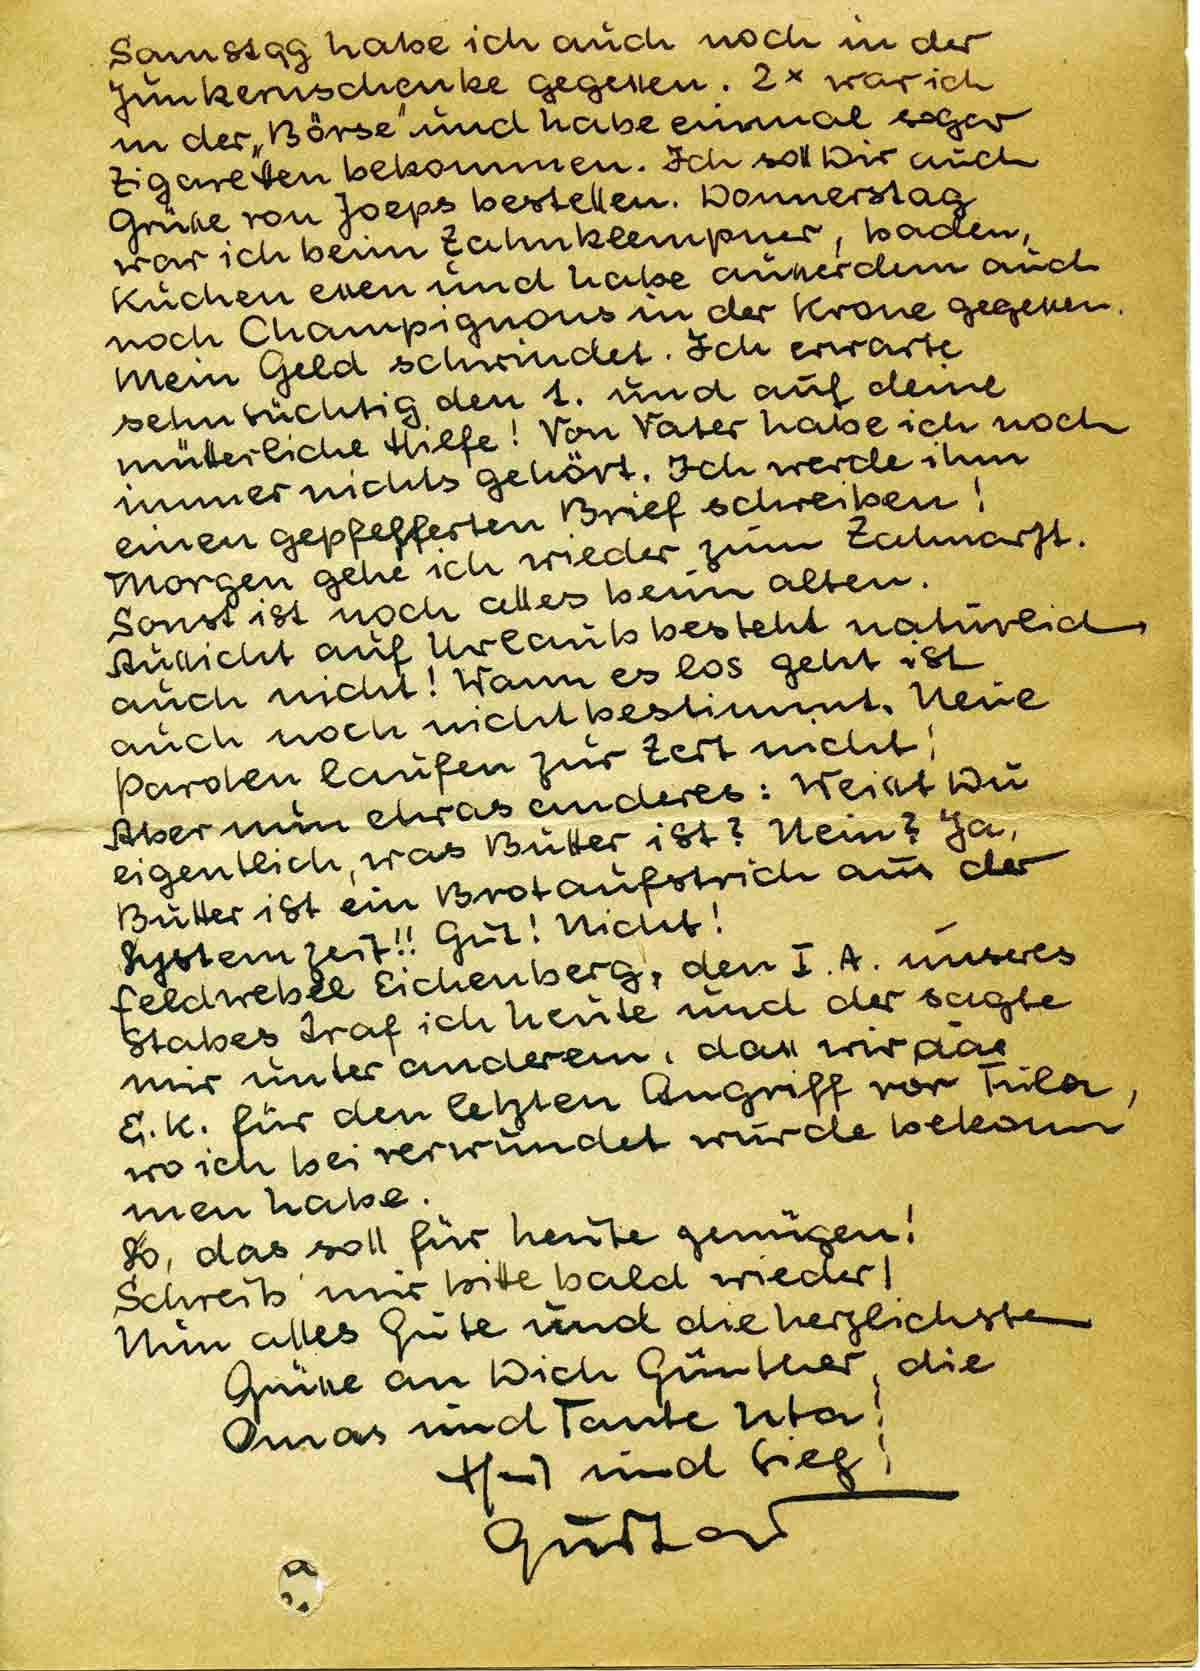 Samstag habe ich auch noch in der
Junkernschenke gegessen. 2x war ich
in der „Börse" und habe einmal sogar
Zigaretten bekommen. Ich soll Dir auch
Grüsse von Joeps bestellen. Donnerstag
war ich beim Zahnklempner, baden,
Kuchen essen und habe ausserdem auch
noch Champignons in der Krone gegessen.
Mein Geld schwindet. Ich erwarte
sehnsüchtig den 1. und auf deine
mütterliche Hilfe! Von Vater habe ich noch
immer nichts gehört. Ich werde ihm
einen gepfefferten Brief schreiben!
Morgen gehe ich wieder zum Zahnarzt.
Sonst ist noch alles beim alten.
Aussicht auf Urlaub besteht natürlich
auch nicht! Wann es los geht ist
auch noch nicht bestimmt. Neue
Parolen laufen zur Zeit nicht!
Aber nun etwas anderes: Weisst Du
eigentlich, was Butter ist? Nein? Ja,
Butter ist ein Brotaufstrich aus der
Systemzeit!! Gut! Nicht!
Feldwebel Eichenberg, den I.A. unseres
Stabes traf ich heute und der sagte
mir unter anderem, dass wir das
E.K. für den letzten Angriff vor Tula,
wo ich bei verwundet wurde bekom
men habe.
So, das soll für heute genügen!
Schreib' mir bitte bald wieder!
Nun alles Gute und die herzlichsten
Grüsse an Dich Günther, die
Omas und Tante Uta!
Heil und Sieg!
Gustav